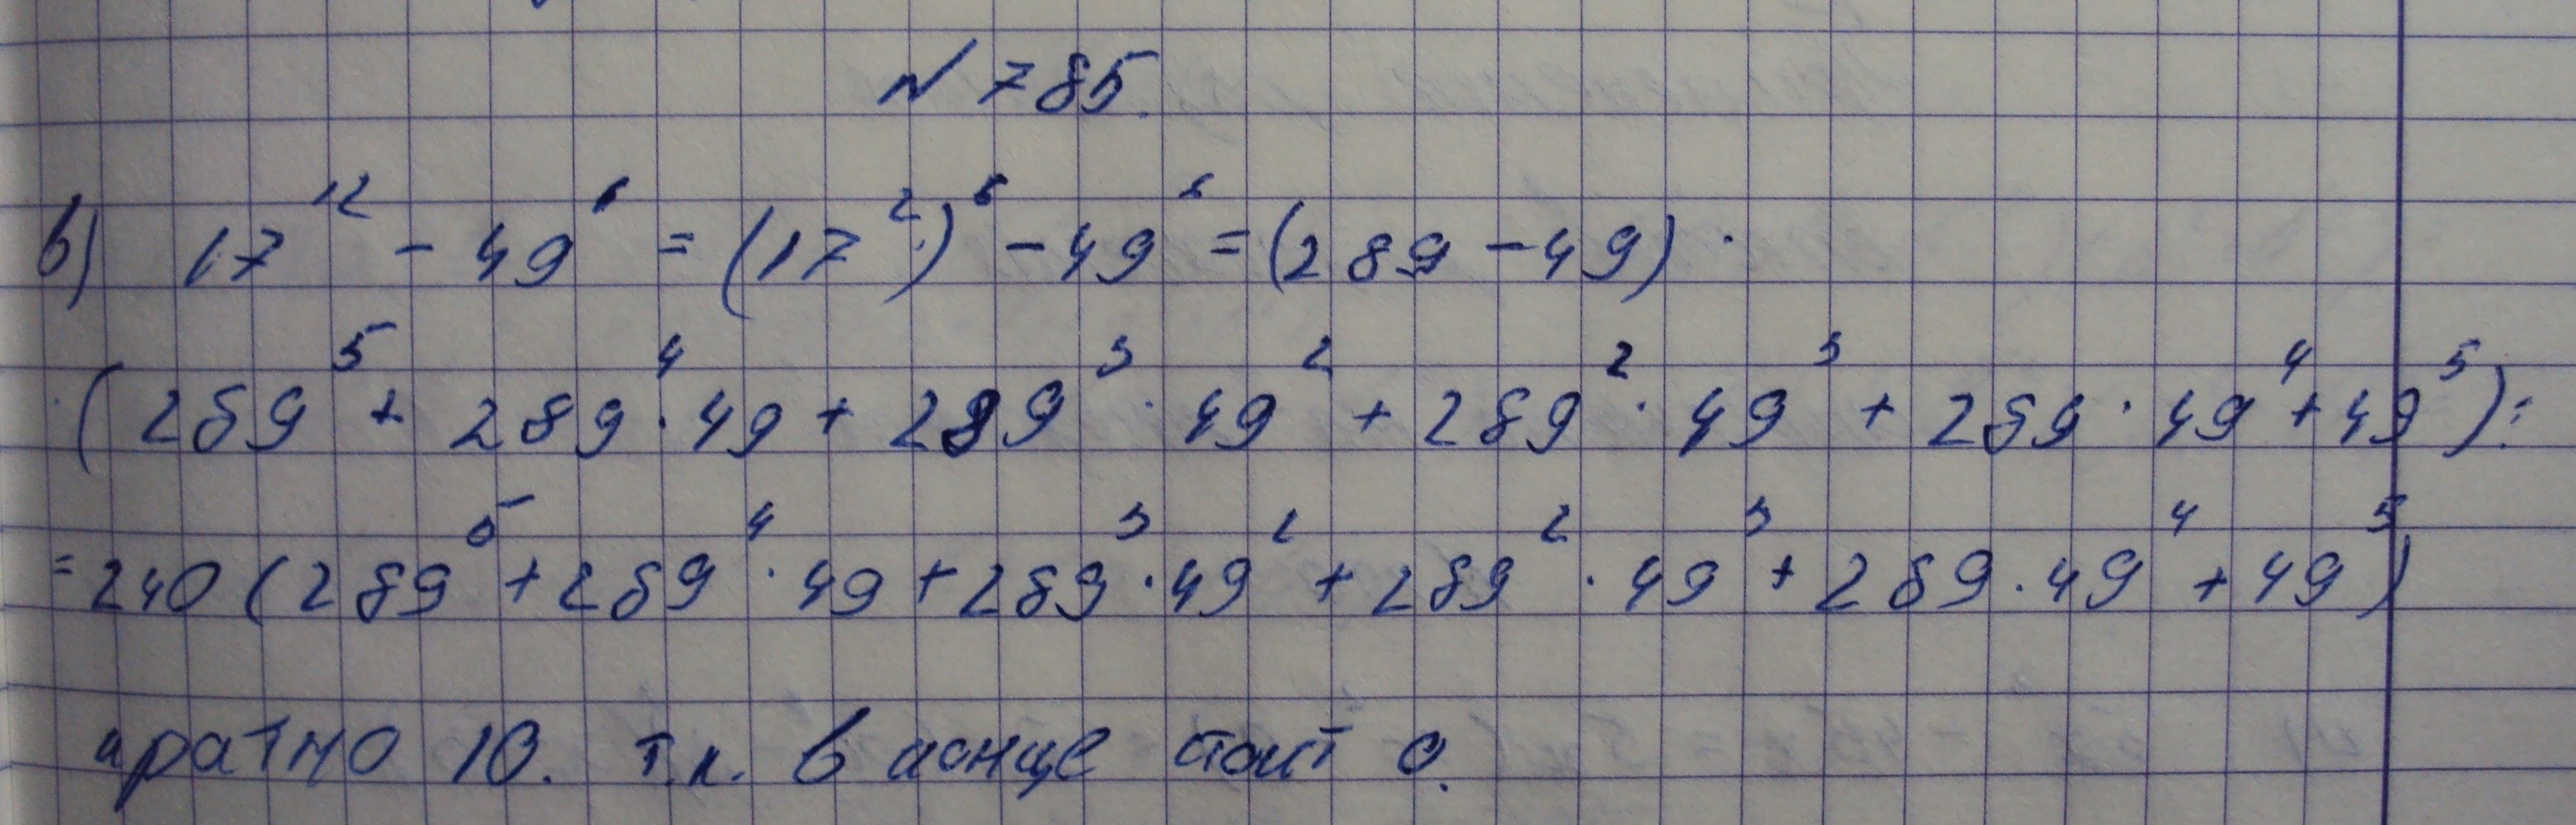 № 785.
в) 17¹² - 49⁶ = (17²)⁶ - 49⁶ = (289 - 49) ·
· (289⁵ + 289⁴ · 49 + 289³ · 49² + 289² · 49³ + 289 · 49⁴ + 49⁵) =
= 240 (289⁵ + 289⁴ · 49 + 289³ · 49² + 289² · 49³ + 289 · 49⁴ + 49⁵)
кратно 10. т.к. в конце стоит 0.